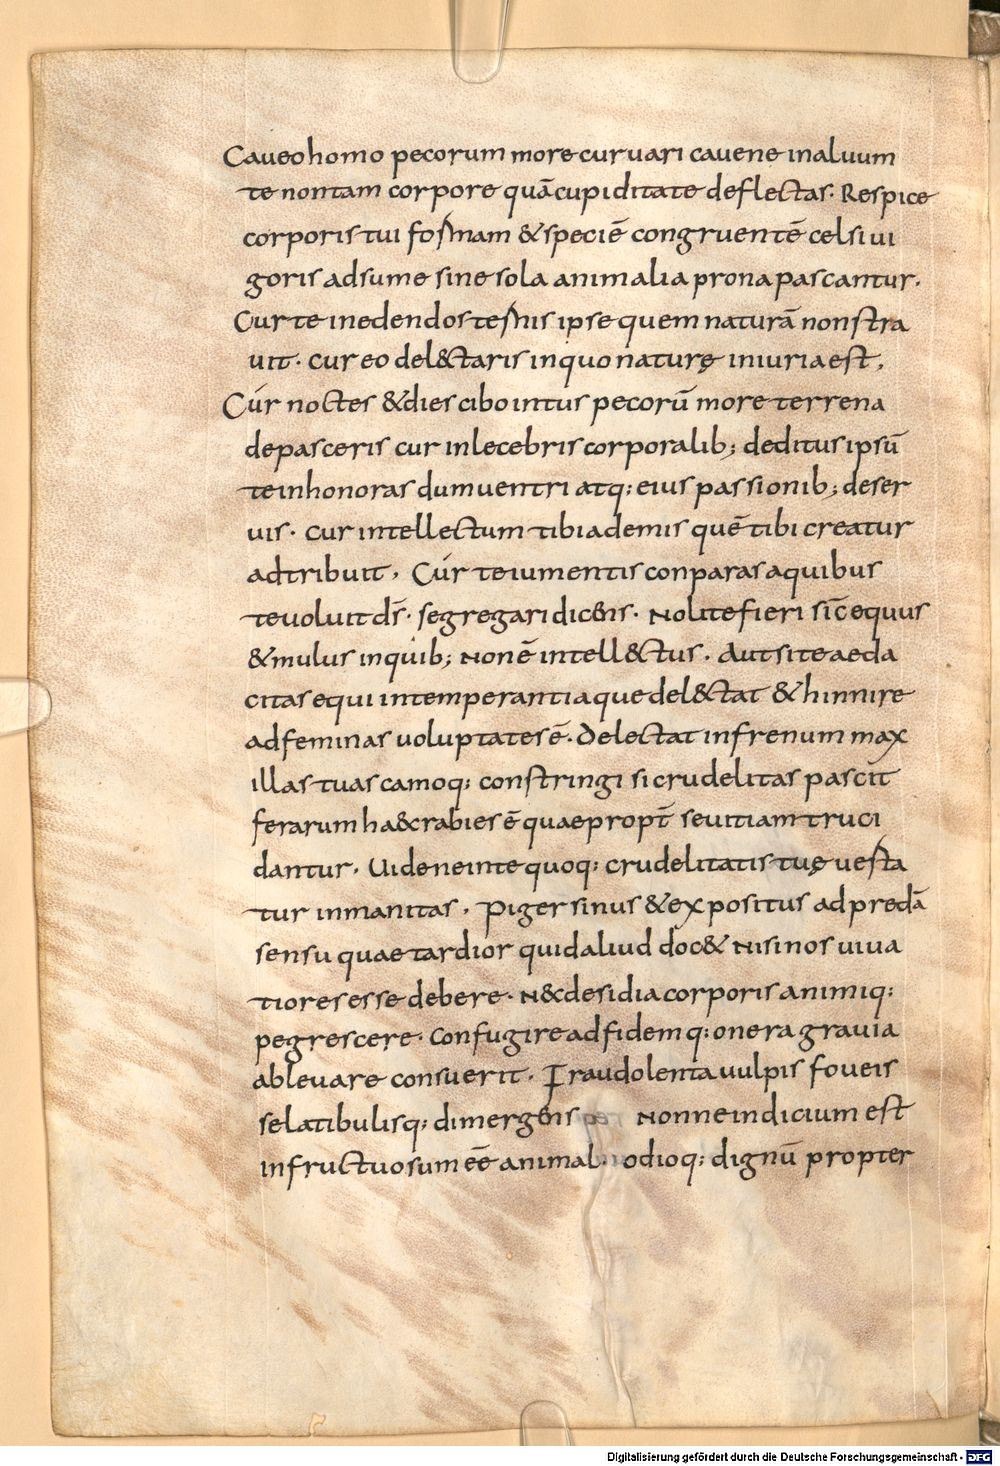 Caueo homo pecorum more curuari cauene inaluum
te non tam corpore quā cupiditate deflectas. Respice
corporis tui formam & speciē congruentē celsi ui
goris adsume sine sola animalia prona pascantur.
Cur te inedendo sternis ipse quem naturā non stra
uit. cur eo del&taris in quo naturę iniuria est,
Cúr noctes & dies cibo intus pecorū more terrena
depasceris cur inlecebris corporalib; deditus ipsū
te inhonoras dum uentri atq: eius passionib; deser
uis. cur intellectum tibi ademis quē tibi creatur
adtribuit, Cúr te iumentis conparas a quibus
te uoluit d̄s. segregari dicens. Nolite fieri sic̄ equus
& mulus in quib; non ē intell&tus. Aut si te aeda
citas equi intemperantiaque del&tat & hinnire
ad feminas uoluptates ē. Delectat in frenum max
illas tuas camoq: constringi si crudelitas pascit
ferarum ha&c rabies ē quae propt̄ seuitiam truci
dantur. Uide ne in te quoq: crudelitatis tuę uesta
tur inmanitas, Piger sinus & expositus ad predā
sensu quae tardior quid aliud doc& nisi nos uiua
tiores esse debere. N&c desidia corporis animiq:
pegrescere. confugire ad fidemq: onera grauia
ableuare consuerit. Fraudolenta uulpis foueis
se latibulisq: dimergens Nonne indicium est
infructuosum eē animal. odioq: dignū propter
Digitalisierung gefördert durch die Deutsche Forschungsgemeinschaft - DFG